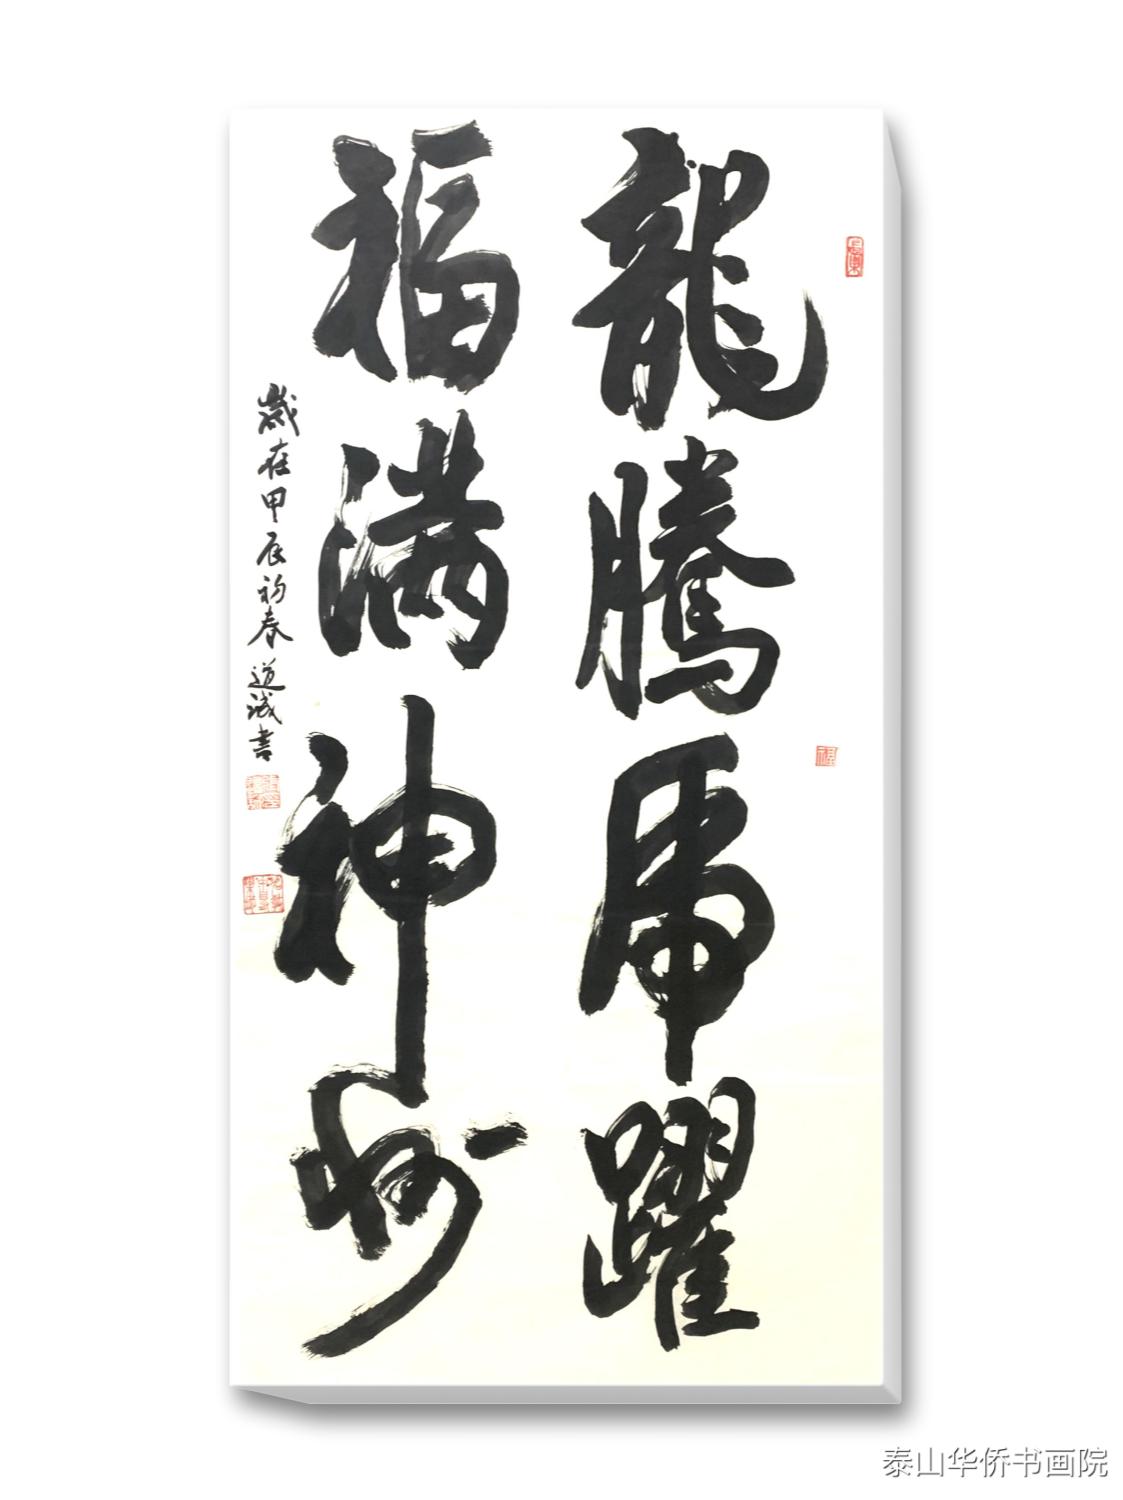 龍騰虎躍
福满神州
歲在甲辰初春道誠書
泰山华侨书画院